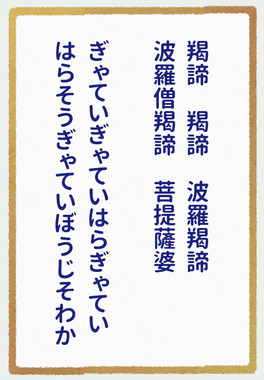 羯諦　羯諦　波羅羯諦
波羅僧羯諦　菩提薩婆
ぎゃていぎゃていはらぎゃてい
はらそうぎゃていぼうじそわか